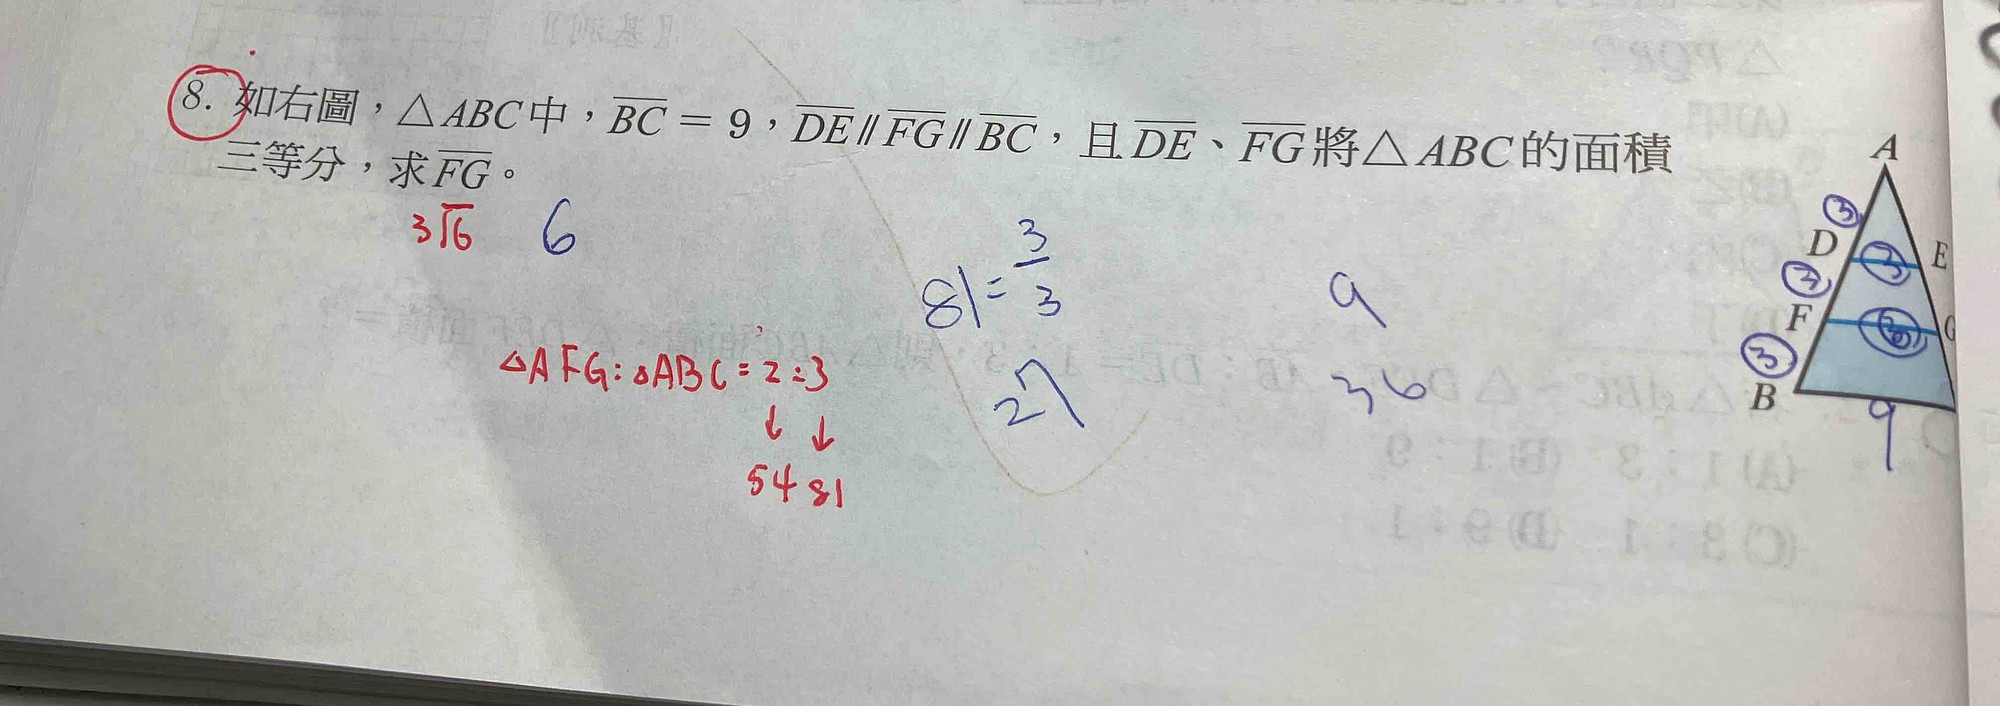 8. 如右圖，△ABC中，BC = 9，DE∥FG∥BC，且DE、FG將△ABC的面積
三等分，求FG。
3√6 6
81 = 3/3
9
27
36
△AFG:△ABC = 2:3
↓ ↓
54 81
A
3
D 3 E
3
F 3 G
3
B
9